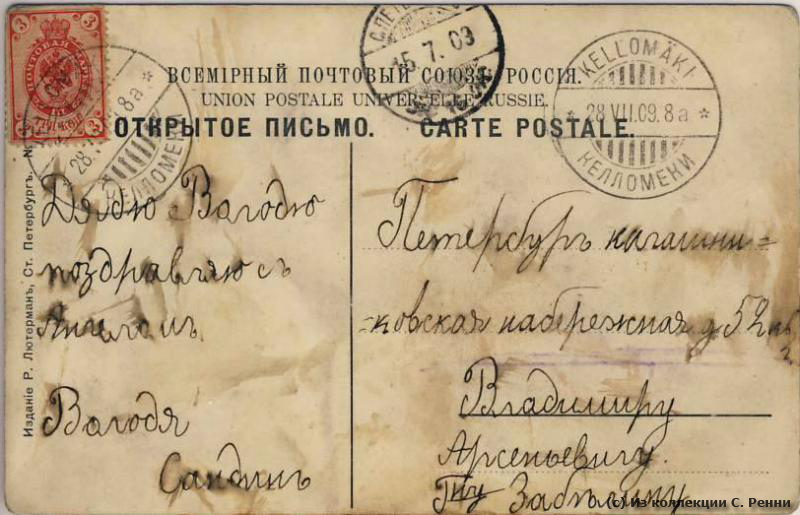 ВСЕМІРНЫЙ ПОЧТОВЫЙ СОЮЗЪ. РОССІЯ.
UNION POSTALE UNIVERSELLE. RUSSIE.
ОТКРЫТОЕ ПИСЬМО. CARTE POSTALE.
3 3
3 3
С.ПЕТЕ
15.7.09
KELLOMÄKI
28 VII.09.8a
КЕЛЛОМЕКИ
28.V 8a
КЕЛЛОМЕКИ
Изданіе Р. Лютерманъ, Ст. Петербургъ. №
Дядю Вагодю
поздравляю съ
Ангеломъ
Вагодя
Сандинъ
Петербургъ калашни=
=ковская набережная д 52 кв
2
Владимиру
Арсеньевичу
Гну Забѣлину
(c) Из коллекции С. Ренни